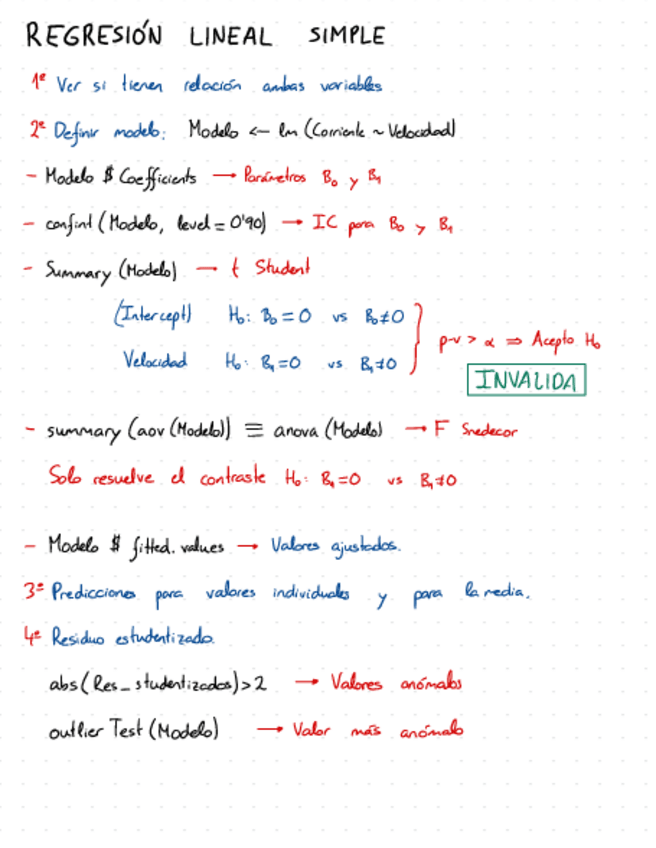 REGRESIÓN LINEAL SIMPLE
1º Ver si tienen relación ambas variables
2º Definir modelo: Modelo ← lm (Corriente ~ Velocidad)
- Modelo $ Coefficients → Parámetros B₀ y B₁
- confint (Modelo, level = 0'90) → IC para B₀ y B₁
- Summary (Modelo) → t Student
(Intercept) H₀: B₀ = 0 vs B₀ ≠ 0
p-v > α ⇒ Acepto H₀
Velocidad H₀: B₁ = 0 vs B₁ ≠ 0
INVALIDA
- summary (aov (Modelo)) ≡ anova (Modelo) → F Snedecor
Solo resuelve el contraste H₀: B₁ = 0 vs B₁ ≠ 0
- Modelo $ fitted. values → Valores ajustados.
3º Predicciones para valores individuales y para la media.
4º Residuo estudentizado.
abs (Res_studentizados) > 2 → Valores anómalos
outlier Test (Modelo) → Valor más anómalo